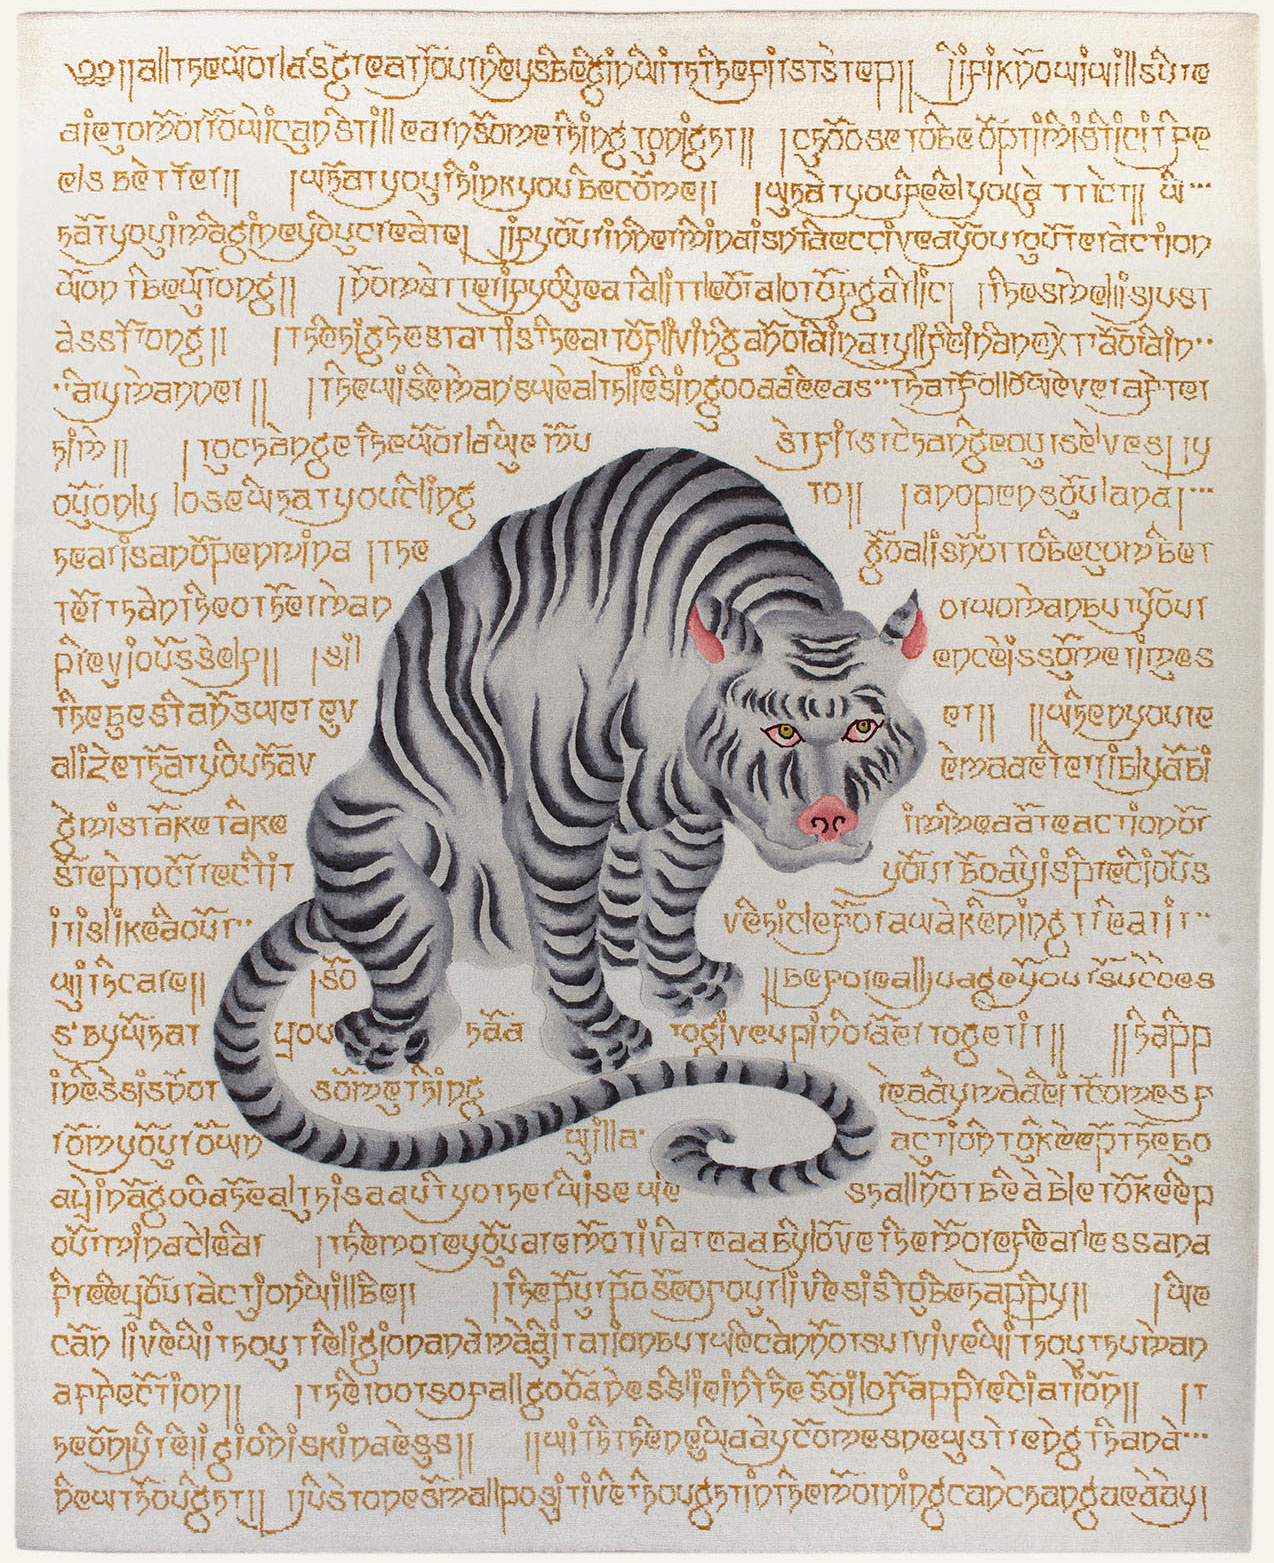 ||alltheworldsgreatjourneysbeginwiththefirststep|| |ifiknowiwillsure
dietomorrowicanstilllearnsomethingtonight|| |choosetobeoptimisticitfe
elsbetter|| |whatyouthinkyoubecome|| |whatyoufeelyouattrict|| w...
hatyouimagineyoucreate| |ifyourinnermindisntdecciveayourouteraction
wontbewrong|| |nomatterifyoueatalittleoralotofgarlic| |thesmellisjust
asstrong|| |thehighestartistheartoflivinganordinarylifeinanextraordin..
..arymanner|| |thewiseman'swealthliesingooddeeds..thatfolloweverafter
him|| |tochangetheworldwemu stfirstchangeourselves|iy
ouonlylosewhatyoucling to|| |anopensouland|...
heartisanopenmind |the goalisnottobecombet
tertthantheotherman orwomanbutyour
previousself|| |sil enceissometimes
thebestanswerev er|| ||whenyoure
alizethatyouhav emadeterriblyabi
gmistaketake immeadateactionor
steptocirrectit yourbodyisprecious
itislikeaour.. vehicleforawakeningtreatit..
withcare|| |so ||beforealljudgeyoursucces
s'bywhat you had togiveupinordertogetit|| ||happ
inessisnot something readymadeitcomesf
romyourown willa. actiontokeepthebo
dyinagoodhealthisadutyotherwisewe shallnotbeabletokeep
ourmindclear |themoreyouaremotivatedbylovethemorefearlessand
freeyouractionwillbe|| |thepurposeofourlivesistobehappy|| |we
canlivewithoutreligionandmaditationbutwecannotsurvivewithouthuman
affection|| |therootsofallgoodnesslieinthesoilofappreciation|| |t
heonlyreligioniskindness|| ||withthenewdaycomesnewstrengthand...
newthought|| |justonesmallpositivethoughtinthemorningcanchangededay|